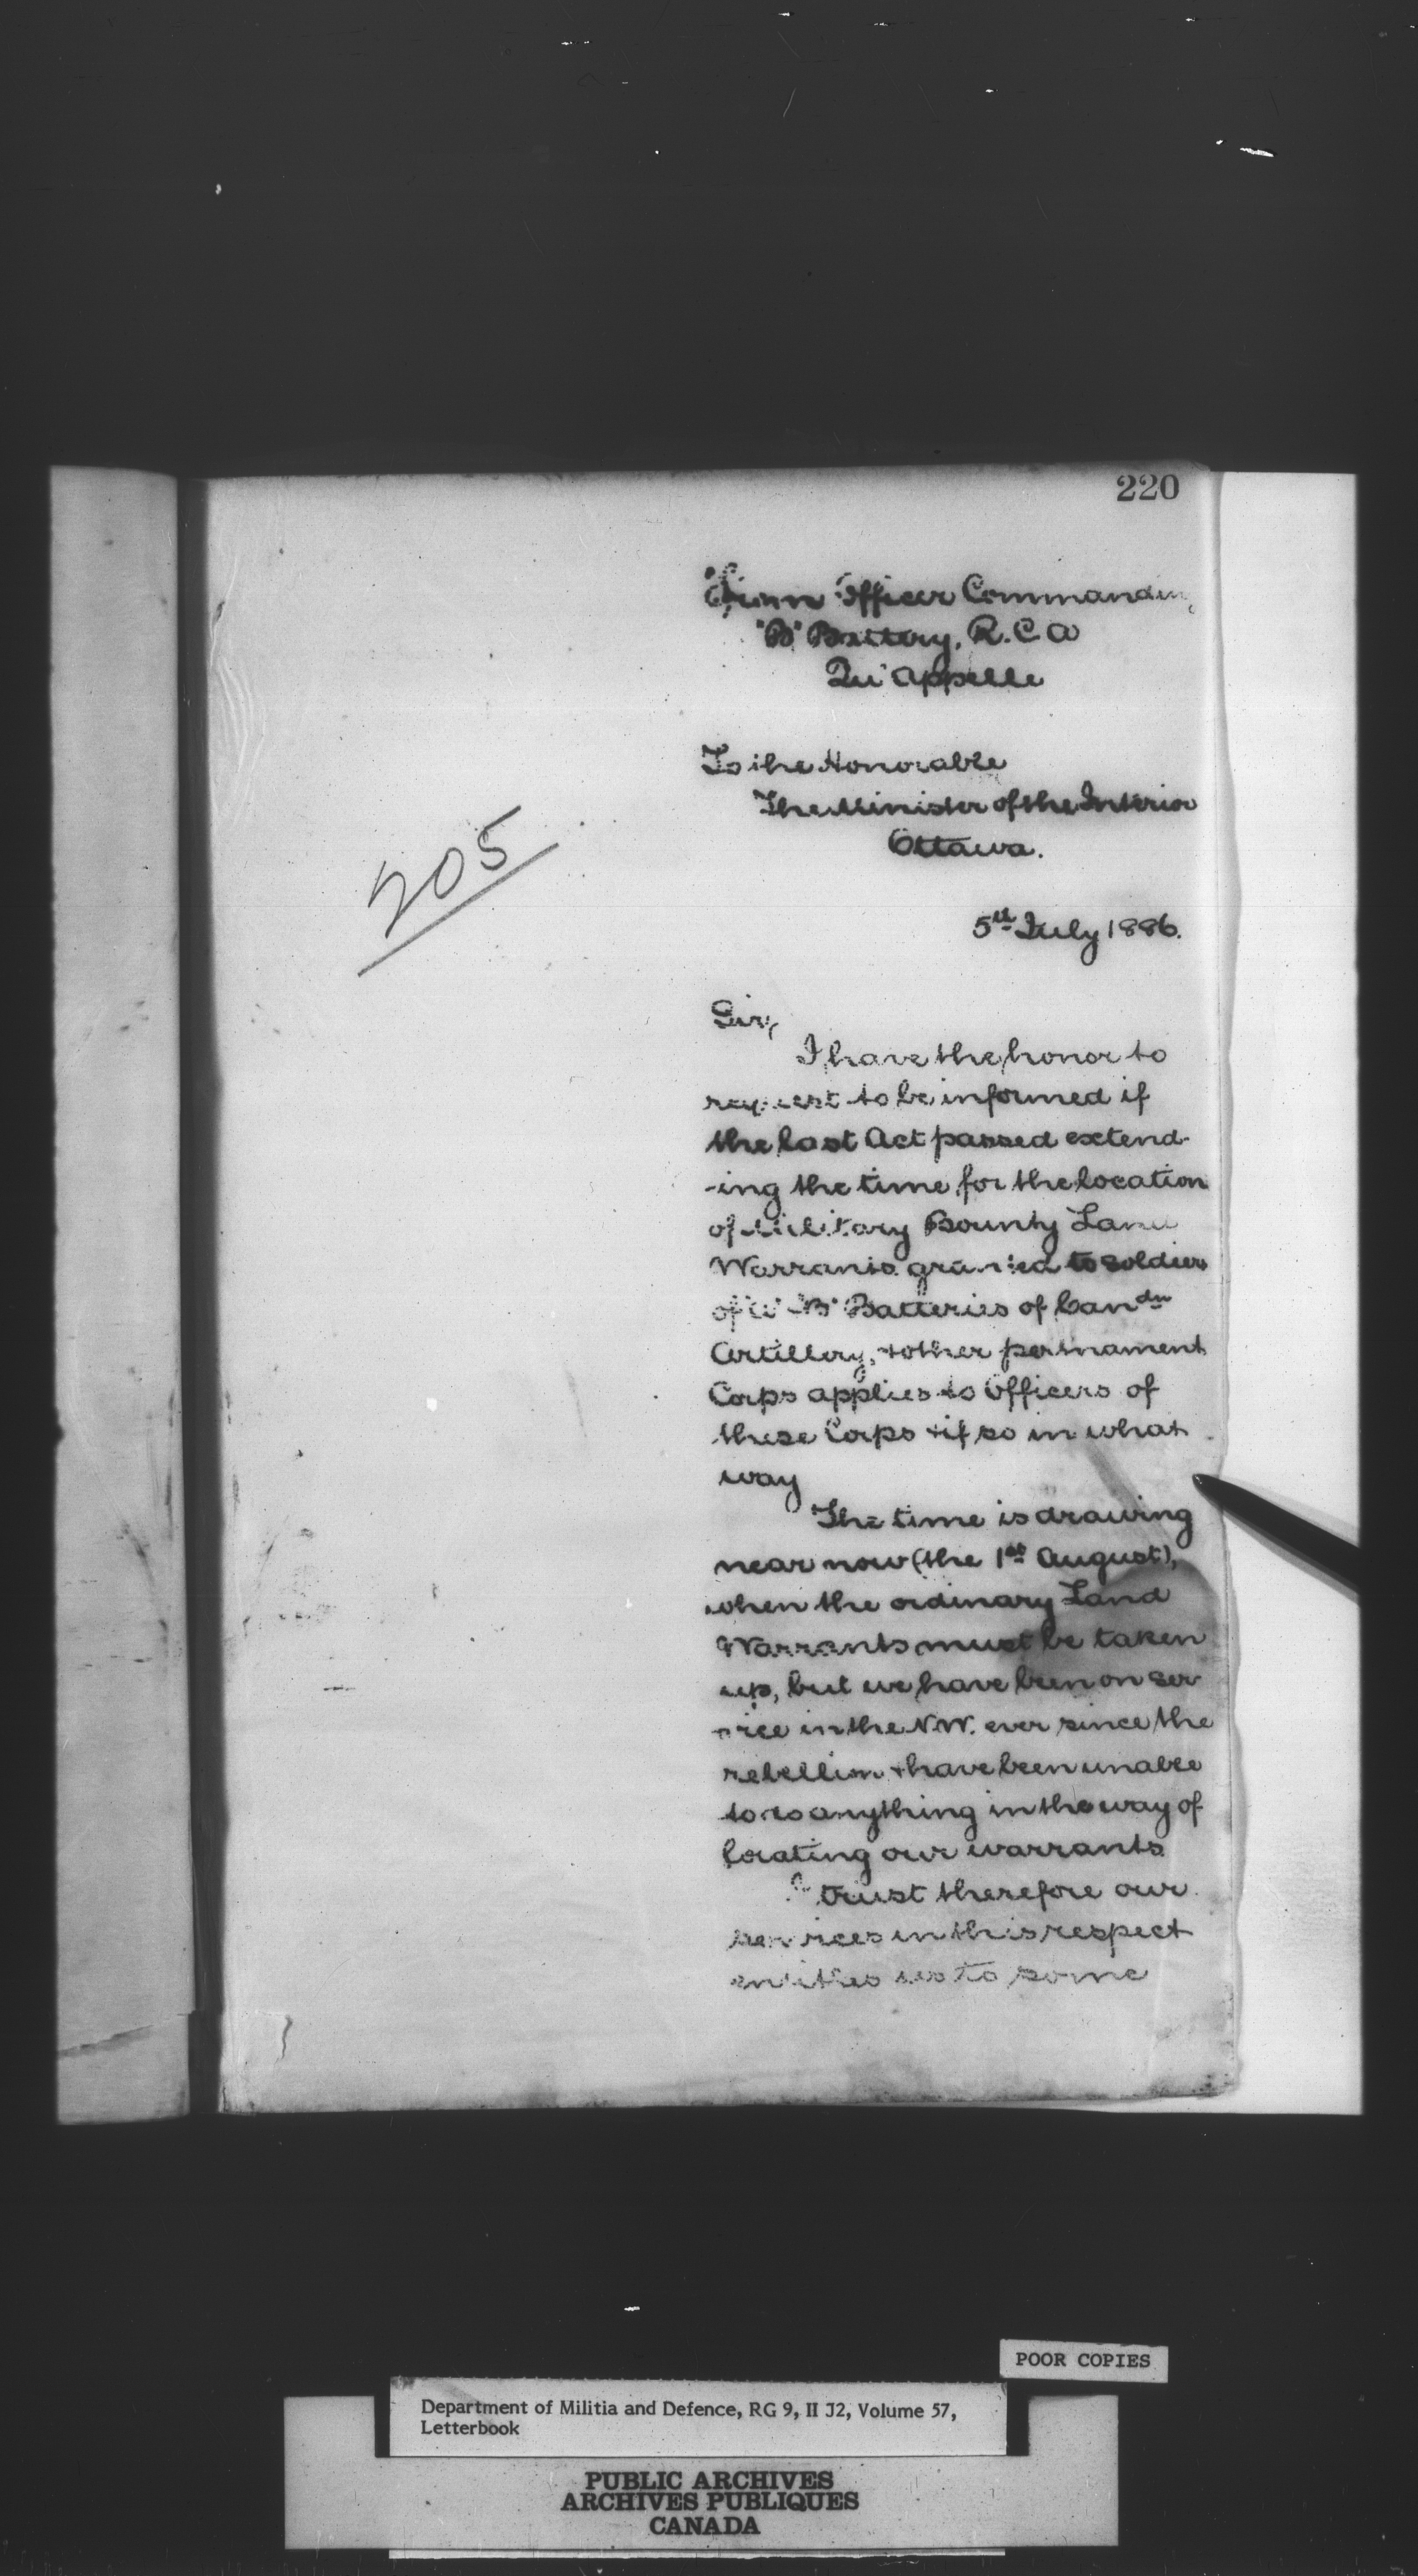 220
From Officer Commanding
"B" Battery, R.C.A
Qu'Appelle
To the Honorable
The Minister of the Interior
Ottawa.
205
5th July 1886.
Sir,
I have the honor to
request to be informed if
the last Act passed extend-
-ing the time for the location
of Military Bounty Land
Warrants granted to soldiers
of "A" "B" Batteries of Can dn
Artillery, + other permanent
Corps applies to Officers of
these Corps + if so in what
way
The time is drawing
near now (the 1st August),
when the ordinary Land
Warrants must be taken
up, but we have been on ser
vice in the N.W. ever since the
rebellion + have been unable
to do anything in the way of
locating our warrants
I trust therefore our
services in this respect
entitles us to some
POOR COPIES
Department of Militia and Defence, RG 9, II J2, Volume 57,
Letterbook
PUBLIC ARCHIVES
ARCHIVES PUBLIQUES
CANADA